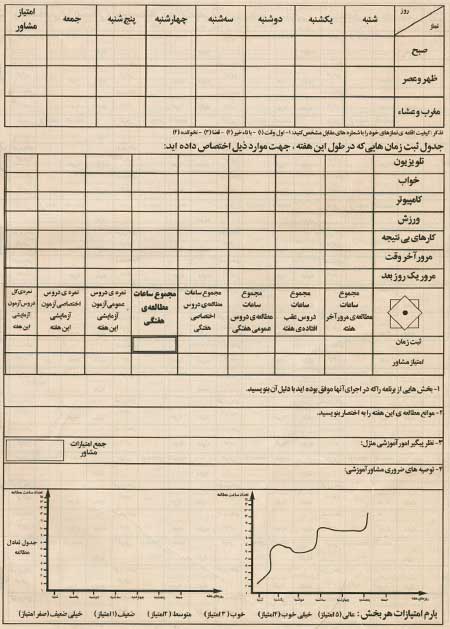 روز نماز شنبه یکشنبه دوشنبه سه‌شنبه چهارشنبه پنج‌شنبه جمعه امتیاز مشاور
صبح
ظهر و عصر
مغرب و عشاء
تذکر: کیفیت اقامه ی نمازهای خود را با شماره های مقابل مشخص کنید: ۱- اول وقت (۱) - با تاخیر (۲) - قضا (۳) - نخوانده (۴)
جدول ثبت زمان هایی که در طول این هفته ، جهت موارد ذیل اختصاص داده اید:
تلویزیون
خواب
کامپیوتر
ورزش
کارهای بی نتیجه
مرور آخر وقت
مرور یک روز بعد
مجموع ساعات مطالعه ی مرور آخر هفته
مجموع ساعات دروس عقب افتاده ی هفته
مجموع ساعات مطالعه ی دروس عمومی هفتگی
مجموع ساعات مطالعه ی دروس اختصاصی هفتگی
مجموع ساعات مطالعه ی هفتگی
نمره ی دروس عمومی آزمون آزمایشی این هفته
نمره ی دروس اختصاصی آزمون آزمایشی این هفته
نمره ی کل دروس آزمون آزمایشی این هفته
ثبت زمان
امتیاز مشاور
۱- بخش هایی از برنامه را که در اجرای آنها موفق بوده اید با دلیل آن بنویسید.
۲- موانع مطالعه ی این هفته را به اختصار بنویسید.
۳- نظر پیگیر امور آموزشی منزل:
جمع امتیازات مشاور
۴- توصیه های ضروری مشاور آموزشی:
تعداد ساعت مطالعه
تعداد ساعت مطالعه
جدول تعادل مطالعه
شنبه یکشنبه دوشنبه سه‌شنبه چهارشنبه پنجشنبه جمعه
روزهای هفته
شنبه یکشنبه دوشنبه سه‌شنبه چهارشنبه پنجشنبه جمعه
روزهای هفته
بارم امتیازات هر بخش : عالی (۵ امتیاز) خیلی خوب (۴ امتیاز) خوب (۳ امتیاز) متوسط (۲ امتیاز) ضعیف (۱ امتیاز) خیلی ضعیف (صفر امتیاز)